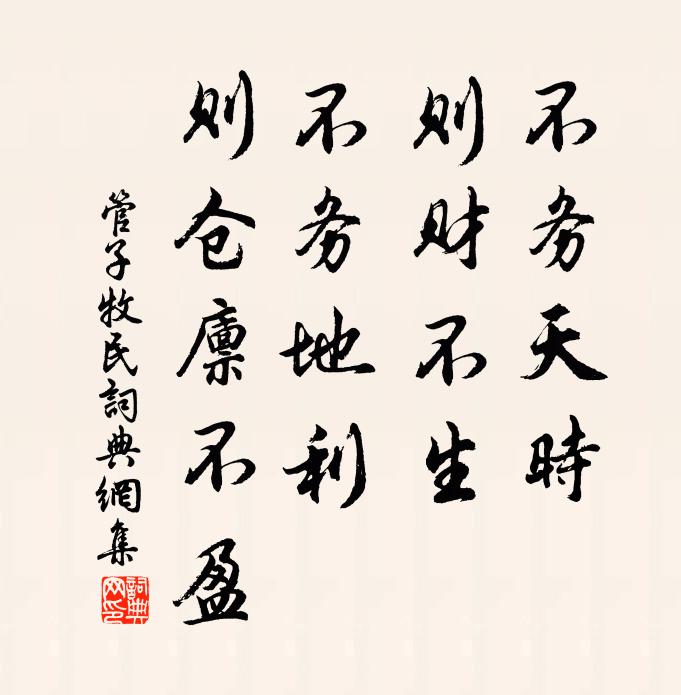 不务天時
则财不生
不务地利
则仓廪不盈
管子牧民詞典網集
詞典
网印